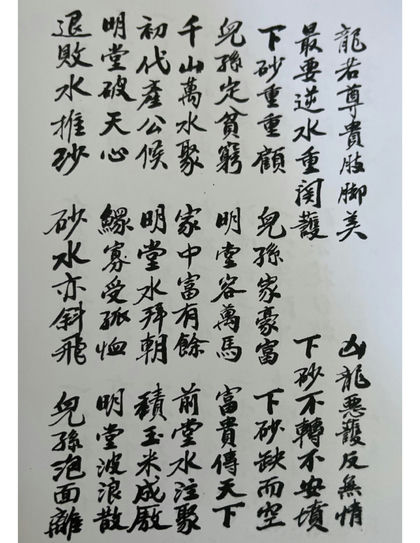 龍若尊貴肢脚美 凶龍惡護反無情
最要逆水重関護 下砂不轉不安墳
下砂重重顧 兒孫家豪富 下砂缺而空
兒孫定貧窮 明堂容萬馬 富貴傳天下
千山萬水聚 家中富有餘 前堂水注聚
初代產公候 明堂水拜朝 積玉米成廒
明堂破天心 鰥寡受孤恤 明堂波浪散
退敗水推砂 砂水亦斜飛 兒孫泡面離